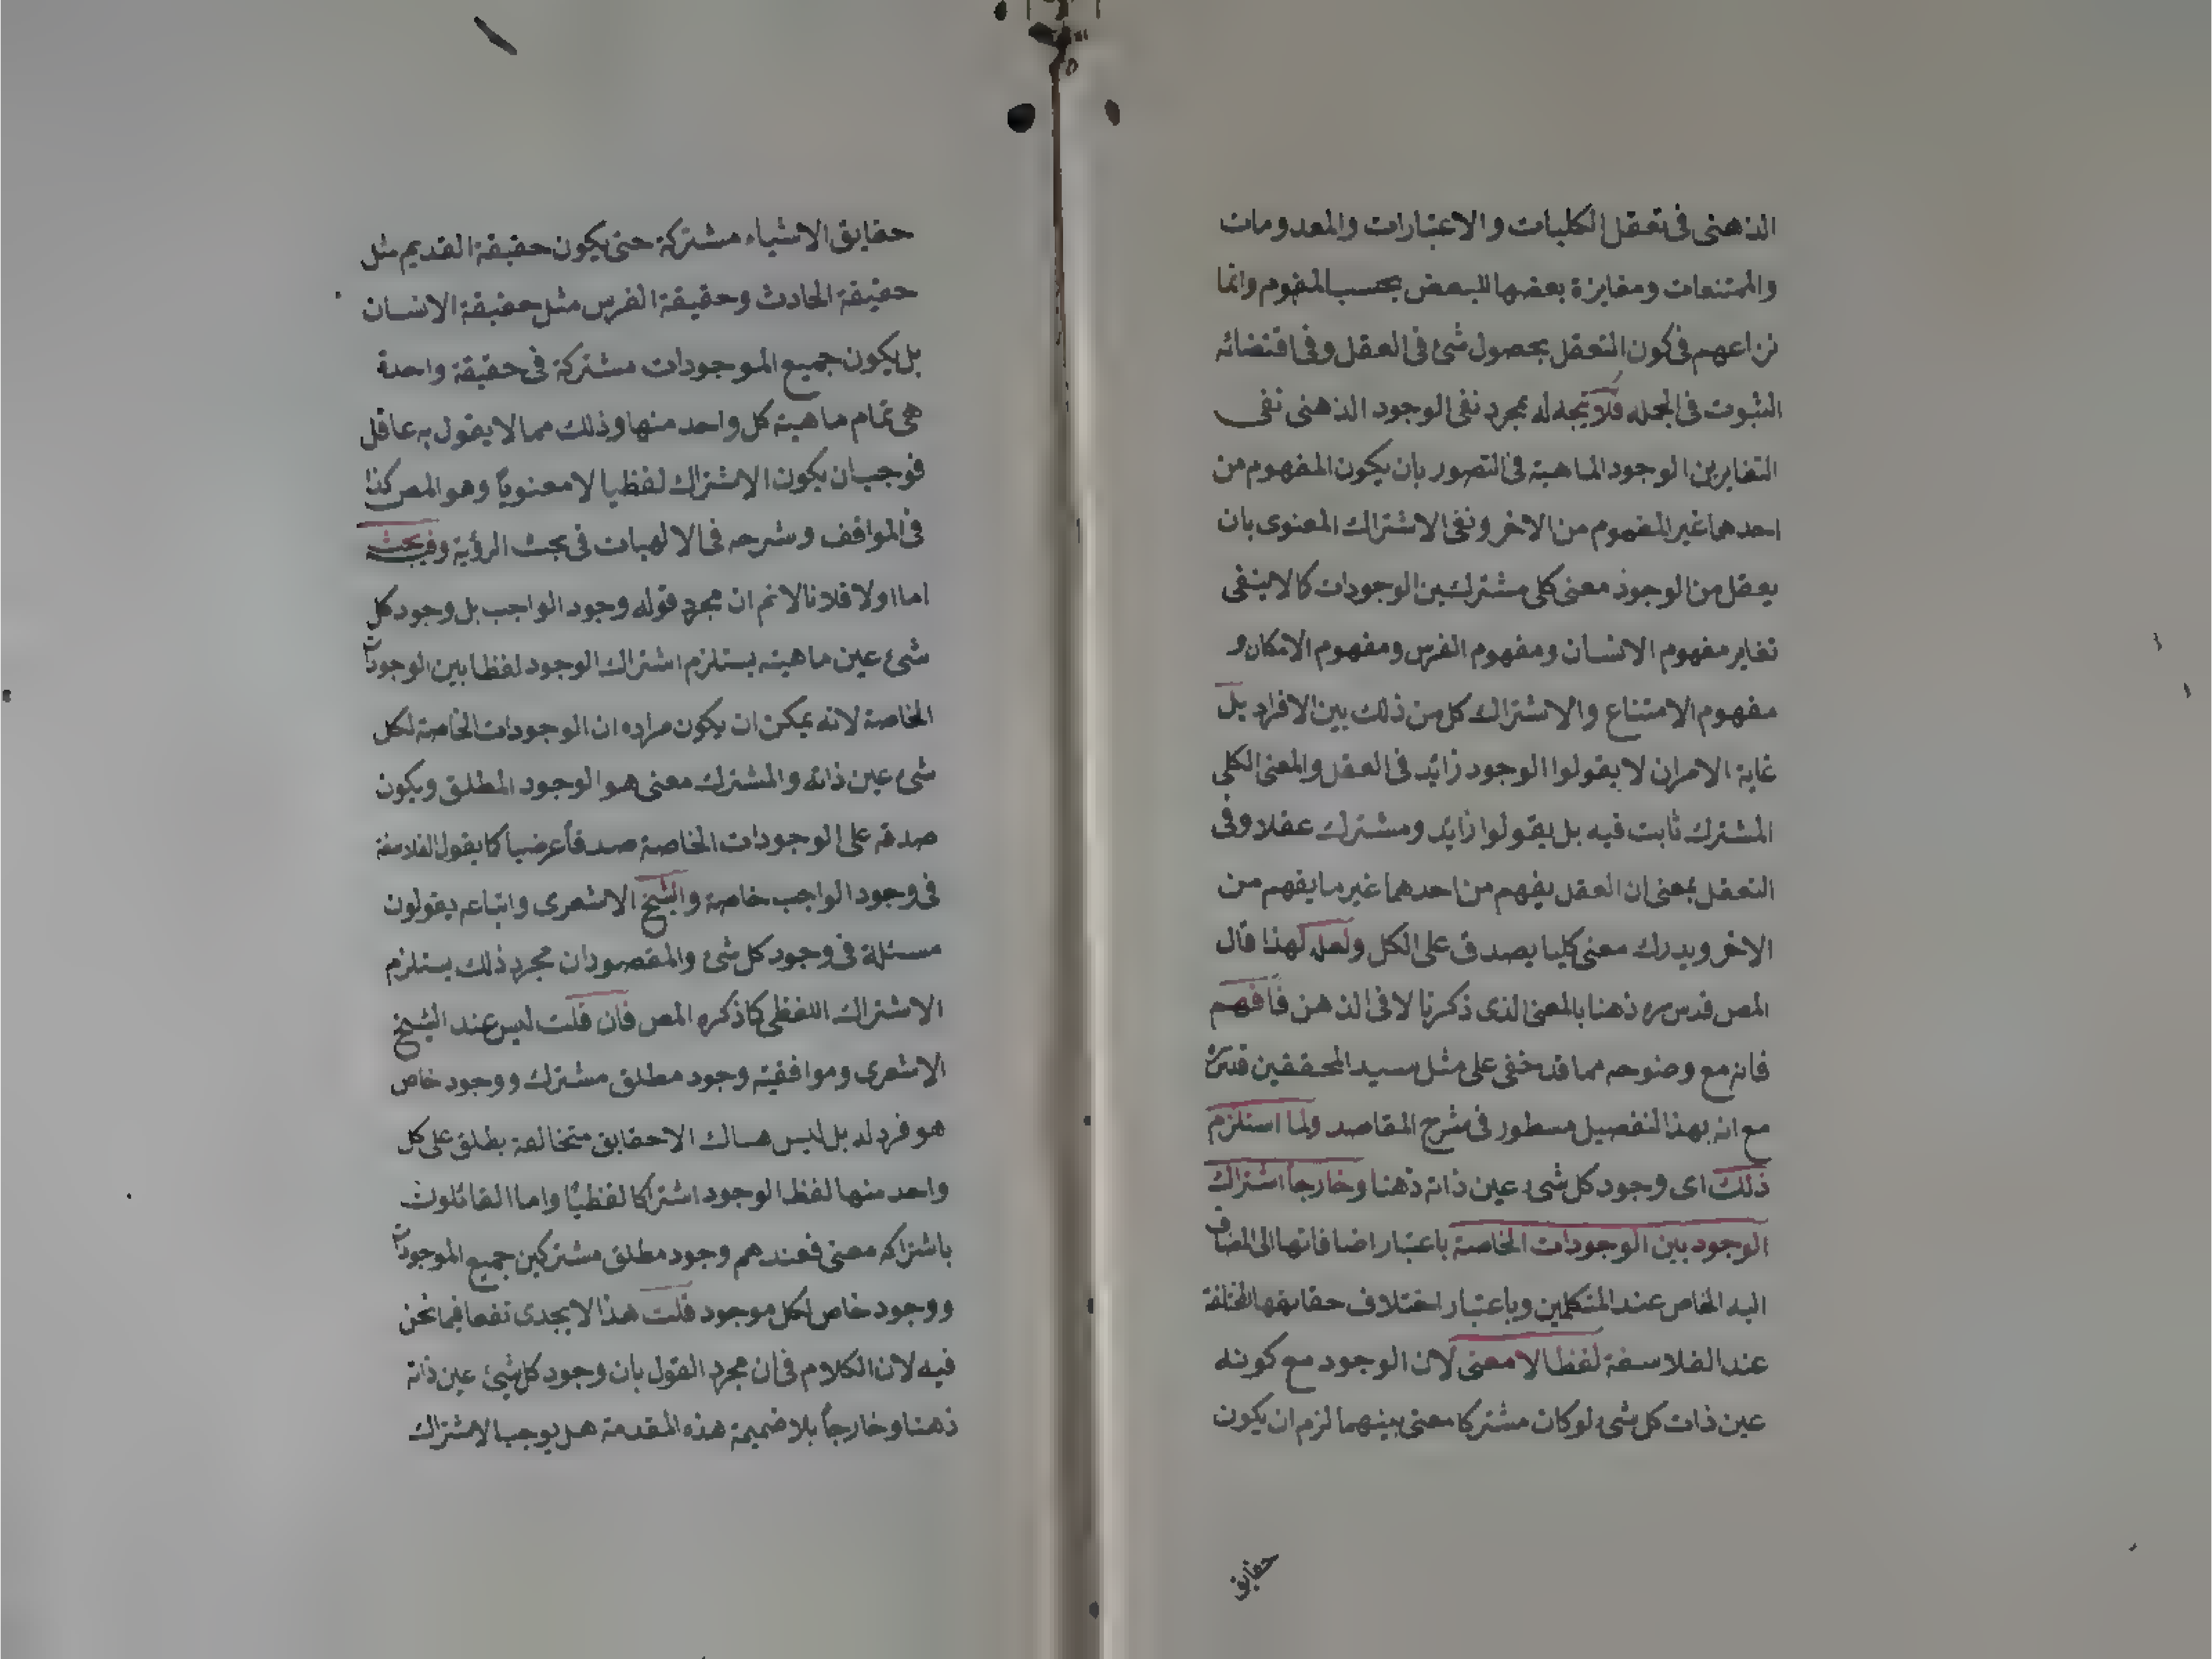 الذهنى فى تعقل الكليات و الاعتبارات والمعدومات
والممتنعات ومغايرة بعضها للبعض بحسب المفهوم وانما
نزاعهم فى كون التعقل بحصول شئ فى العقل وفى اقتضائه
الثبوت فى الجمله فلا يتجه له بمجرد نفى الوجود الذهنى نفى
التغاير بين الوجود الماهية فى التصور بان يكون المفهوم من
احدهما غير المفهوم من الاخر ونفى الاشتراك المعنوى بان
يعقل من الوجود معنى كلى مشترك بين الوجودات كما لا ينفى
تغاير مفهوم الانسان ومفهوم الفرس ومفهوم الامكان و
مفهوم الامتناع والاشتراك كل من ذلك بين الافراد بل
غاية الامر ان لا يقولوا الوجود زائد فى العقل والمعنى الكلى
المشترك ثابت فيه بل يقولوا زائد ومشترك عقلا وفى
التعقل بمعنى ان العقل يفهم من احدهما غير ما يفهم من
الاخر ويدرك معنى كليا يصدق على الكل ولعله لهذا قال
المص قدس سره ذهنا بالمعنى الذى ذكرنا لا فى الذهن فافهم
فانه مع وضوحه مما قد خفى على مثل سيد المحققين قدس سره
مع انه بهذا التفصيل مسطور فى شرح المقاصد ولما استلزم
ذلك اى وجود كل شئ عين ذاته ذهنا وخارجا اشتراك
الوجود بين الوجودات الخاصة باعتبار اضافاتها الى المضاف
اليه الخاص عند المتكلمين وباعتبار اختلاف حقايقها المختلفة
عند الفلاسفة لفظا لا معنى لان الوجود مع كونه
عين ذات كل شئ لو كان مشتركا معنى بينهما لزم ان يكون
حقايق
حقايق الاشياء مشتركة حتى يكون حقيقة القديم مثل
حقيقة الحادث وحقيقة الفرس مثل حقيقة الانسان
بل يكون جميع الموجودات مشتركة فى حقيقة واحدة
هى تمام ماهية كل واحد منها وذلك مما لا يقول به عاقل
فوجب ان يكون الاشتراك لفظيا لا معنوياً وهو المص كذا
فى المواقف وشرحه فى الالهيات فى بحث الرؤية وفيه بحث
اما اولا فلانا لانم ان مجرد قوله وجود الواجب بل وجود كل
شئ عين ماهيته يستلزم اشتراك الوجود لفظا بين الوجودات
الخاصة لانه يمكن ان يكون مراده ان الوجودات الخاصة لكل
شئ عين ذاته والمشترك معنى هو الوجود المطلق ويكون
صدقه على الوجودات الخاصة صدقاً عرضيا كما يقول الفلاسفة
فى وجود الواجب خاصة والشيخ الاشعرى واتباعه يقولون
مسئلة فى وجود كل شئ والمقصود ان مجرد ذلك يستلزم
الاشتراك اللفظى كما ذكره المص فان قلت ليس عند الشيخ
الاشعرى وموافقيه وجود مطلق مشترك ووجود خاص
هو فرد له بل ليس هناك الا حقايق متخالفة يطلق على كل
واحد منها لفظ الوجود اشتراكا لفظيًا واما القائلون
باشتراكه معنى فعندهم وجود مطلق مشترك بين جميع الموجودات
ووجود خاص لكل موجود قلت هذا لا يجدى نفعا فيما نحن
فيه لان الكلام فى ان مجرد القول بان وجود كل شئ عين ذاته
ذهنا وخارجاً بلا ضميمة هذه المقدمة هل يوجب الاشتراك